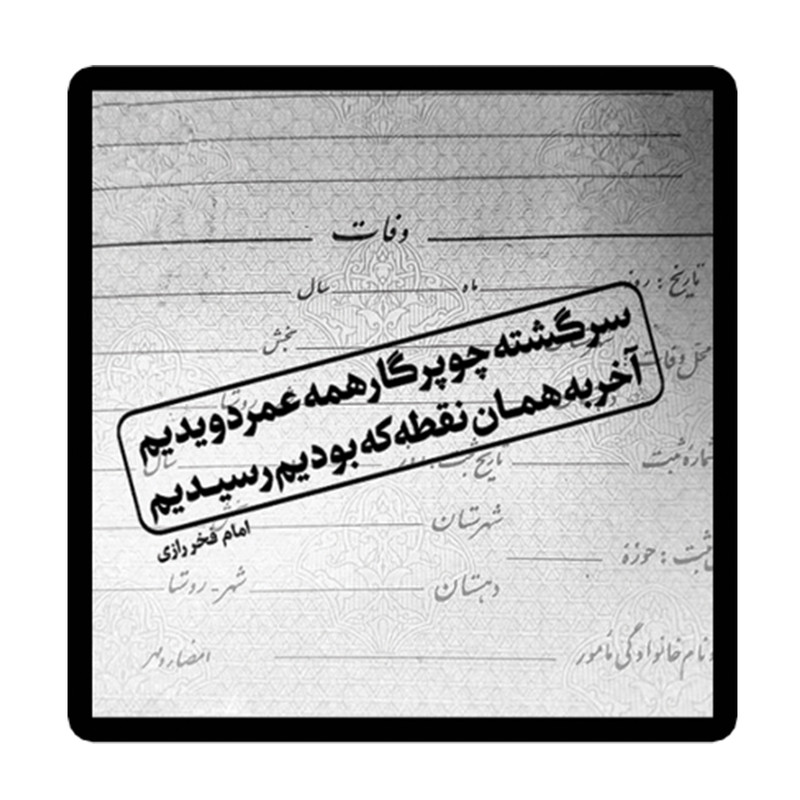 وفات
تاریخ : روز ماه سال
بخش
محل وفات
سرگشته چو پرگار همه عمر دویدیم
آخر به همان نقطه که بودیم رسیدیم
امام فخر رازی
شماره ثبت تاریخ ثبت : روز سال
شهرستان
ثبت : حوزه
دهستان شهر - روستا
نام خانوادگی مأمور امضاء و مهر